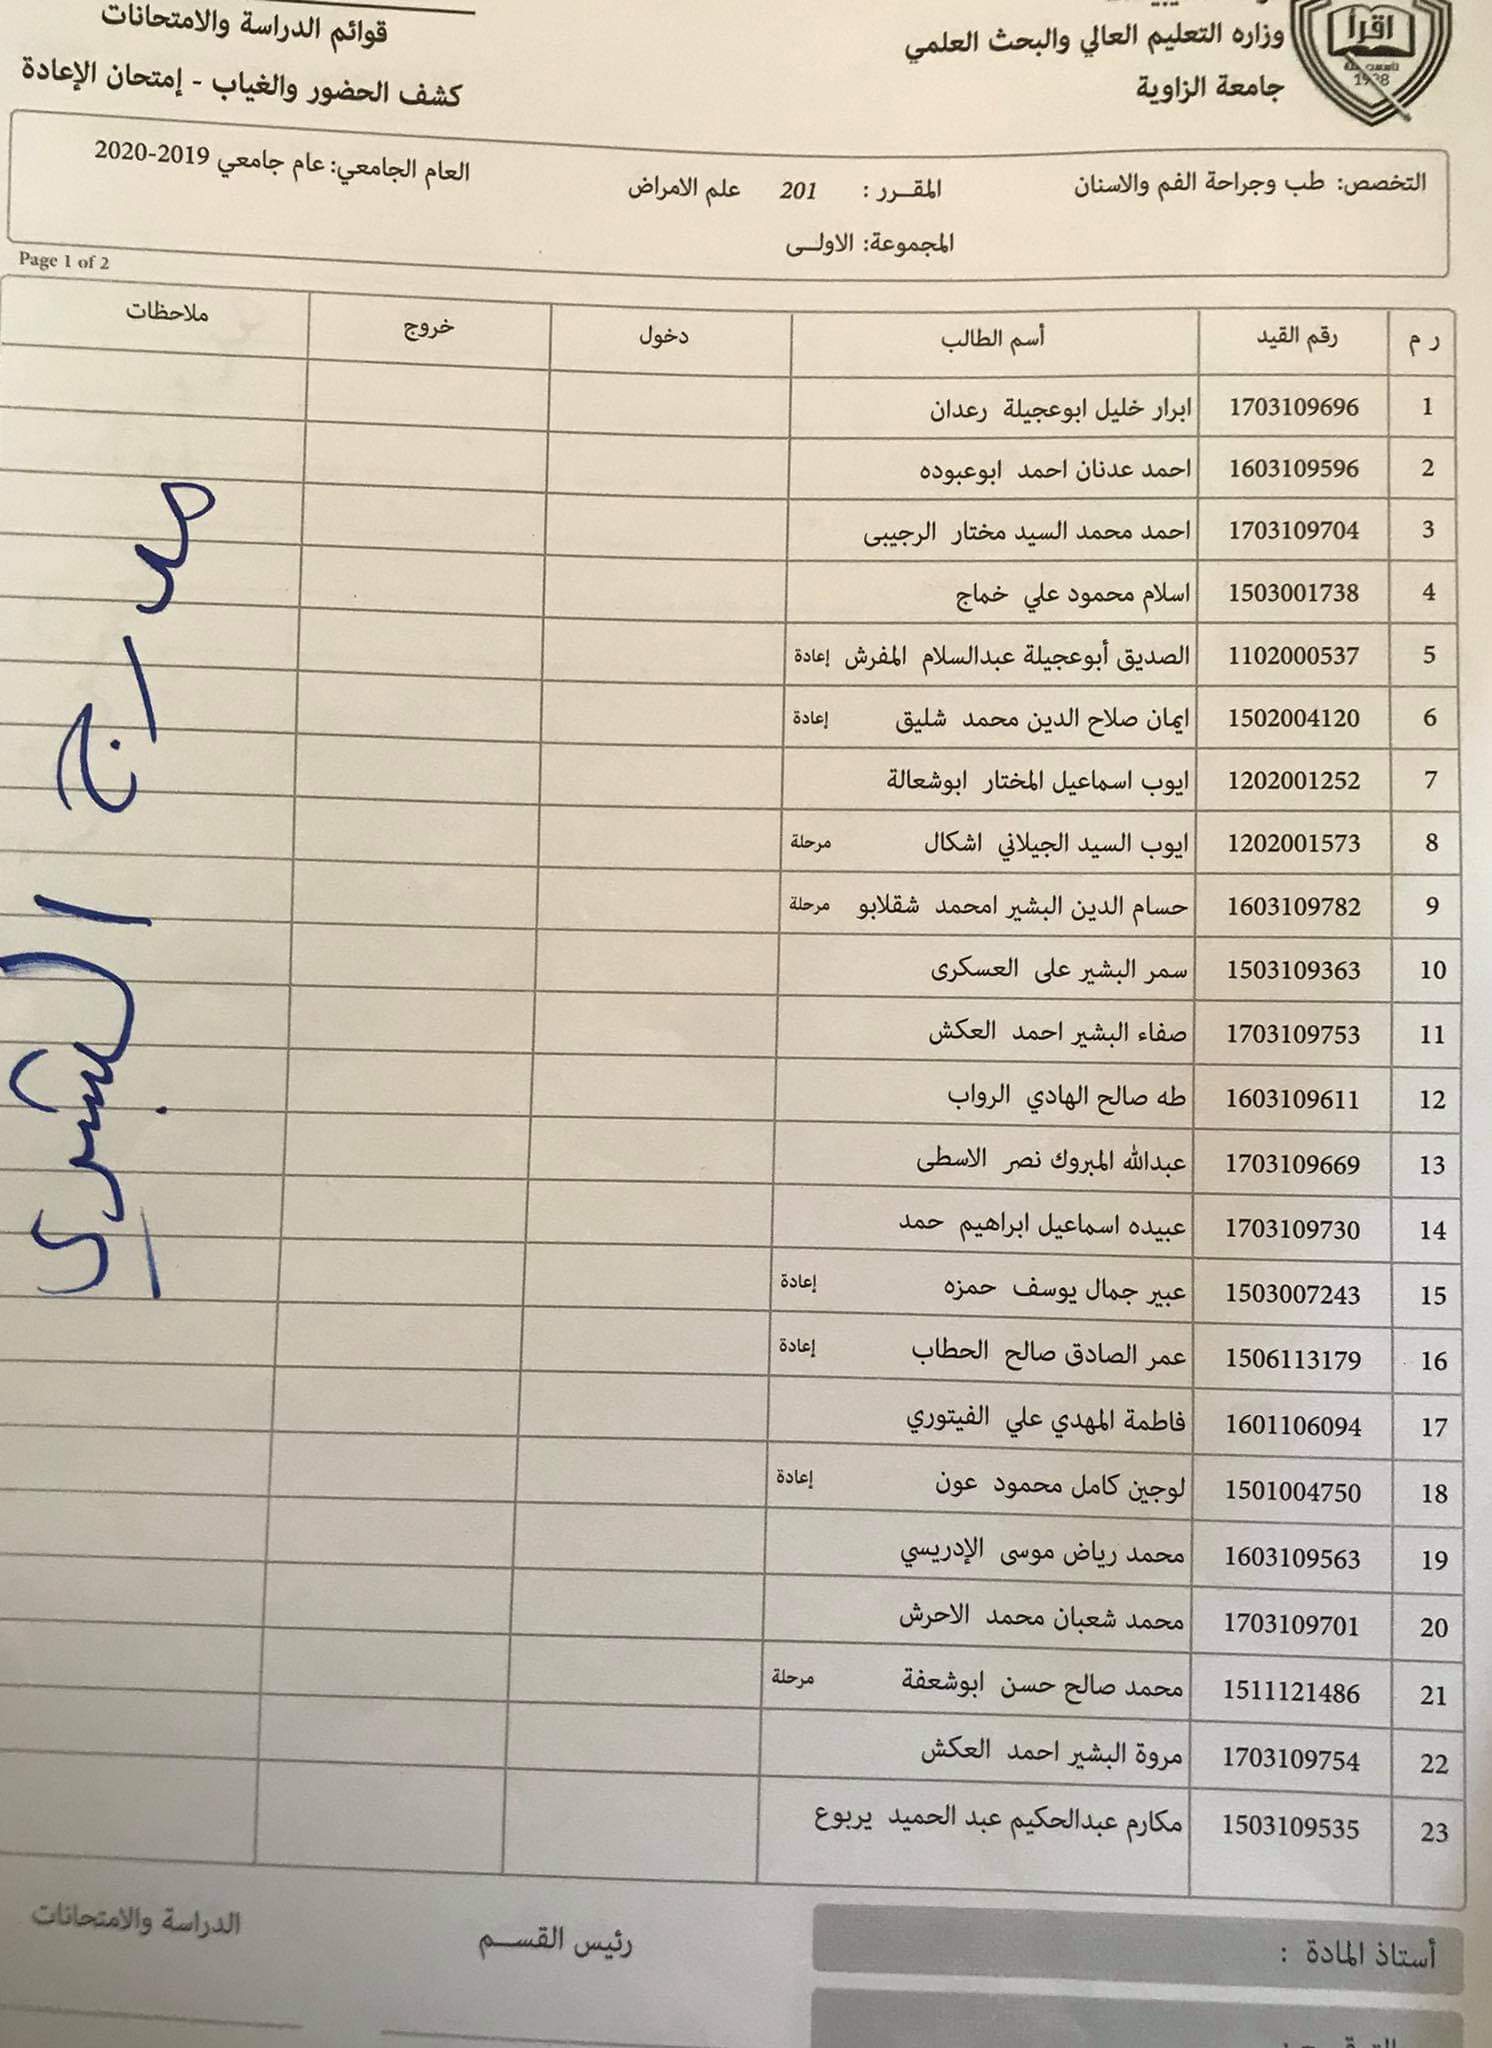 اقرأ
1988
وزاره التعليم العالي والبحث العلمي
جامعة الزاوية
قوائم الدراسة والامتحانات
كشف الحضور والغياب - إمتحان الإعادة
التخصص: طب وجراحة الفم والاسنان
المقـــرر : 201 علم الامراض
العام الجامعي: عام جامعي 2019-2020
المجموعة: الاولــى
Page 1 of 2
ر م رقم القيد أسم الطالب دخول خروج ملاحظات
1 1703109696 ابرار خليل ابوعجيلة رعدان
2 1603109596 احمد عدنان احمد ابوعبوده
3 1703109704 احمد محمد السيد مختار الرجيبى
4 1503001738 اسلام محمود علي خماج
5 1102000537 الصديق أبوعجيلة عبدالسلام المفرش إعادة
6 1502004120 ايمان صلاح الدين محمد شليق إعادة
7 1202001252 ايوب اسماعيل المختار ابوشعالة
8 1202001573 ايوب السيد الجيلاني اشكال مرحلة
9 1603109782 حسام الدين البشير امحمد شقلابو مرحلة
10 1503109363 سمر البشير على العسكرى
11 1703109753 صفاء البشير احمد العكش
12 1603109611 طه صالح الهادي الرواب
13 1703109669 عبدالله المبروك نصر الاسطى
14 1703109730 عبيده اسماعيل ابراهيم حمد
15 1503007243 عبير جمال يوسف حمزه إعادة
16 1506113179 عمر الصادق صالح الحطاب إعادة
17 1601106094 فاطمة المهدي علي الفيتوري
18 1501004750 لوجين كامل محمود عون إعادة
19 1603109563 محمد رياض موسى الإدريسي
20 1703109701 محمد شعبان محمد الاحرش
21 1511121486 محمد صالح حسن ابوشعفة مرحلة
22 1703109754 مروة البشير احمد العكش
23 1503109535 مكارم عبدالحكيم عبد الحميد يربوع
أستاذ المادة :
رئيس القســـم
الدراسة والامتحانات